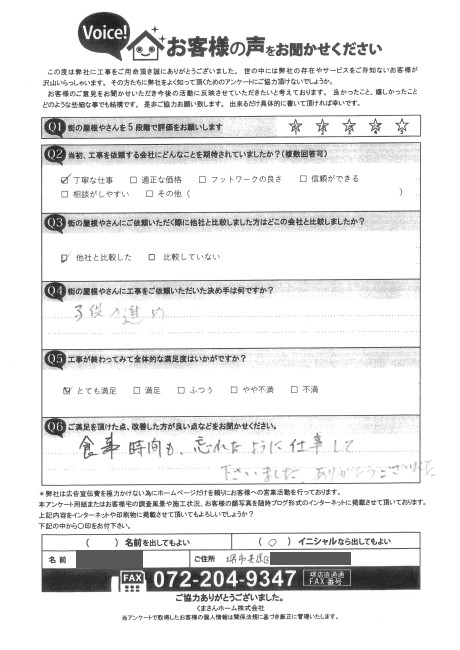 Voice!
お客様の声をお聞かせください
この度は弊社に工事をご用命頂き誠にありがとうございました。世の中には弊社の存在やサービスをご存知ないお客様が
沢山いらっしゃいます。その方たちに弊社をよく知って頂くためのアンケートにご協力頂けないでしょうか。
お客様のご意見をお聞かせいただき今後の活動に反映させていただきたいと考えております。良かったこと、嬉しかったこと
どのような些細な事でも結構です。是非ご協力お願い致します。出来るだけ具体的に書いて頂ければ幸いです。
Q1 街の屋根やさんを5段階で評価をお願いします
1 2 3 4 5
Q2 当初、工事を依頼する会社にどんなことを期待されていましたか?(複数回答可)
☑ 丁寧な仕事 □ 適正な価格 □ フットワークの良さ □ 信頼ができる
□ 相談がしやすい □ その他 ( )
Q3 街の屋根やさんにご依頼いただく際に他社と比較しました方はどこの会社と比較しましたか?
☑ 他社と比較した □ 比較していない
Q4 街の屋根やさんに工事をご依頼いただいた決め手は何ですか?
子供の進め
Q5 工事が終わってみて全体的な満足度はいかがですか?
☑ とても満足 □ 満足 □ ふつう □ やや不満 □ 不満
Q6 ご満足を頂けた点、改善した方が良い点などをお聞かせください。
食事時間も、忘れたように仕事して
下さいました、ありがとうございました
*弊社は広告宣伝費を極力かけない為にホームページだけを頼りにお客様への営業活動を行っております。
本アンケート用紙またはお客様宅の調査風景や施工状況、お客様の顔写真を随時ブログ形式のインターネットに掲載させて頂いております。
上記内容をインターネットや印刷物に掲載させて頂いてもよろしいでしょうか?
下記の中から〇印をお付下さい。
( ) 名前を出してもよい ( ○ ) イニシャルなら出してもよい
名前 ご住所 堺市美原区
FAX 072-204-9347 堺店直通 FAX番号
ご協力ありがとうございました。
くまさんホーム株式会社
当アンケートで取得したお客様の個人情報は関係法規に基づき厳正に管理いたします。